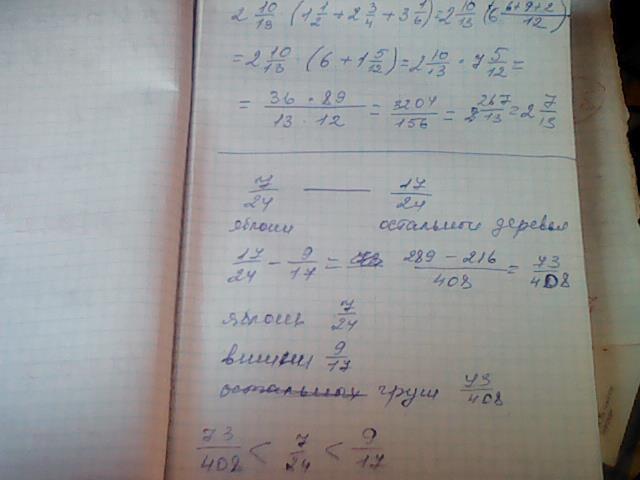 2 10/13 (1 1/2 + 2 3/4 + 3 1/6) = 2 10/13 (6 6+9+2/12)
= 2 10/13 · (6 + 1 5/12) = 2 10/13 · 7 5/12 =
= 36 · 89 / 13 · 12 = 3204/156 = 267/13 = 2 7/13
7/24 — 17/24
яблони остальной деревья
17/24 - 9/17 = 289 - 216 / 408 = 73/408
яблонь 7/24
вишни 9/17
груш 73/408
73/408 < 7/24 < 9/17